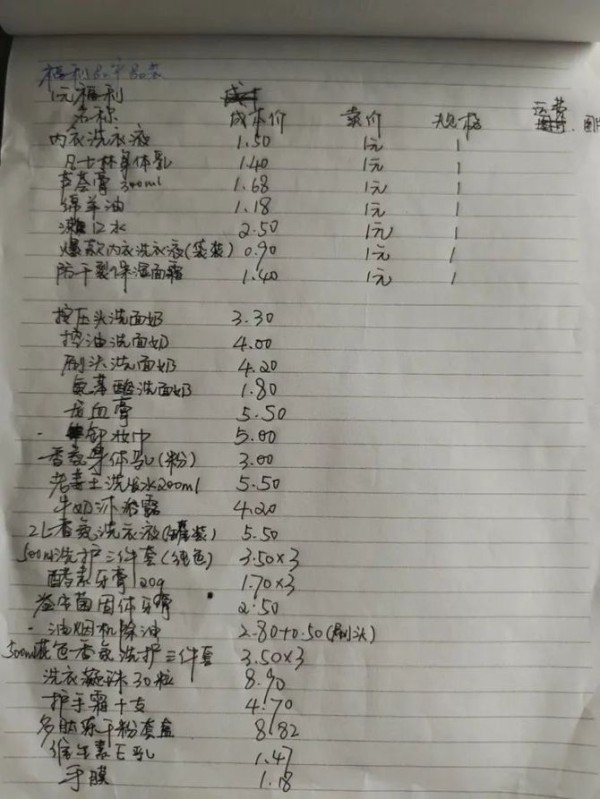 福利品产品表
1元福利
名称 成本价 卖价 规格 运费
内衣洗衣液 1.50 1元 1
凡士林身体乳 1.40 1元 1
芦荟膏300ml 1.68 1元 1
绵羊油 1.18 1元 1
漱口水 2.50 1元 1
爆款内衣洗衣液(袋装) 0.90 1元 1
防干裂保湿面霜 1.40 1元 1
按压头洗面奶 3.30
控油洗面奶 4.00
刷头洗面奶 4.20
氨基酸洗面奶 1.80
血膏 5.50
卸妆巾 5.00
香氛身体乳(粉) 3.00
老姜王洗发水200ml 5.50
牛奶沐浴露 4.20
2L香氛洗衣液(罐装) 5.50
500ml洗护三件套(纯色) 3.50×3
酵素牙膏120g 1.70×3
益生菌固体牙膏 2.50
油烟机除油 2.80+0.50(刷头)
500ml花色香氛洗护三件套 3.50×3
洗衣凝珠30粒 8.90
护手霜十支 4.70
多肽冻干粉套盒 8.82
维生素E乳 1.47
手膜 1.18